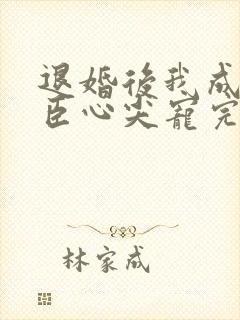 退婚後我成
臣心尖寵完
林家成